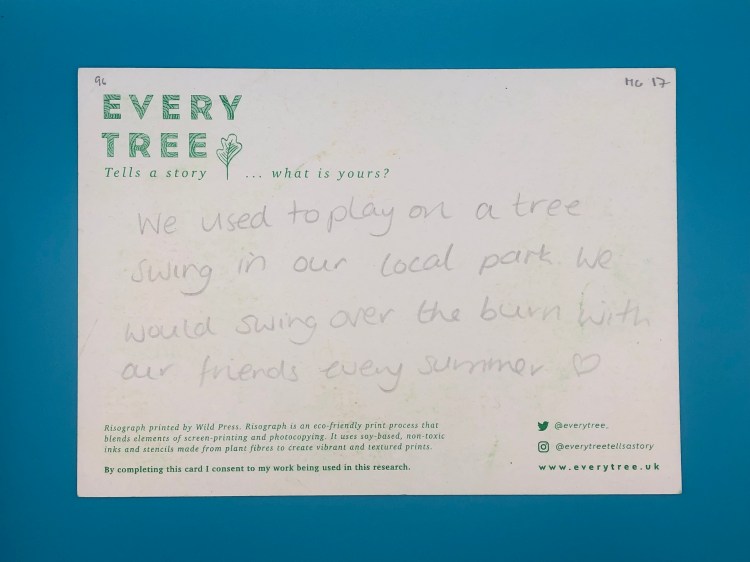 96
MG 17
EVERY
TREE
Tells a story ... what is yours?
We used to play on a tree
swing in our local park. We
would swing over the burn with
our friends every summer ♡
Risograph printed by Wild Press. Risograph is an eco-friendly print process that
blends elements of screen-printing and photocopying. It uses soy-based, non-toxic
inks and stencils made from plant fibres to create vibrant and textured prints.
By completing this card I consent to my work being used in this research.
@everytree_
@everytreetellsastory
www.everytree.uk